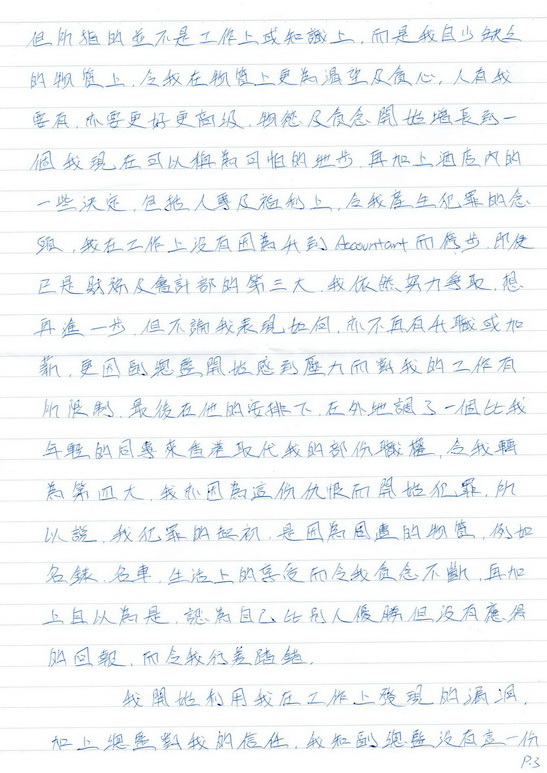 但所犯的並不是工作上或知識上，而是我自少缺乏
的物質上，令我在物質上更為渴望及貪心，人有我
要有，亦要更好更高級，物慾及貪念開始增長到一
個我現在可以稱為可怕的地步，再加上酒店內的
一些決定，包括人事及福利上，令我產生犯罪的念
頭，我在工作上沒有因為升到Accountant而停步，即使
已是財務及會計部的第三大，我依然努力爭取，想
再進一步，但不論我表現如何，亦不再有升職或加
薪，更因副總監開始感到壓力而對我的工作有
所限制，最後在他的安排下，在外地調了一個比我
年輕的同事來香港取代我的部份職權，令我轉
為第四大，我亦因為這份仇恨而開始犯罪，所
以說，我犯罪的起初，是因為周遭的物質，例如
名錶，名車，生活上的享受而令我貪念不斷，再加
上自以為是，認為自己比別人優勝但沒有應得
的回報，而令我行差踏錯。
我開始利用我在工作上發現的漏洞，
加上總監對我的信任，我知副總監沒有這一份
P.3